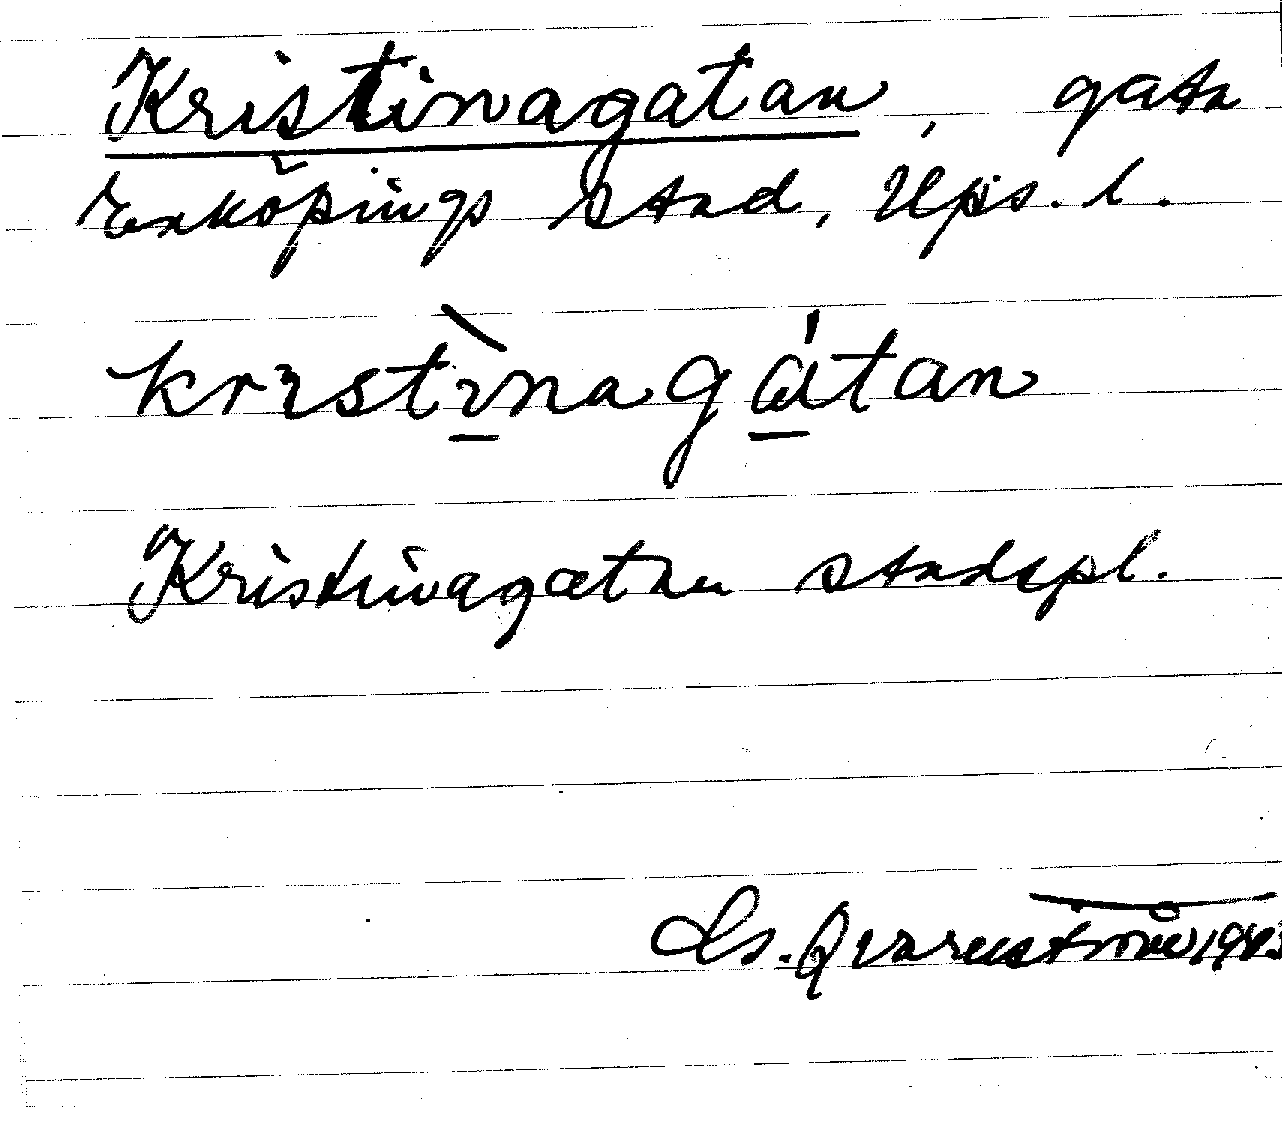 Kristinagatan, gata
Enköpings stad, Ups. l.
krɪstɪ̀nagátan
Kristinagatan stadspl.
Ls. Qvarnström 1943